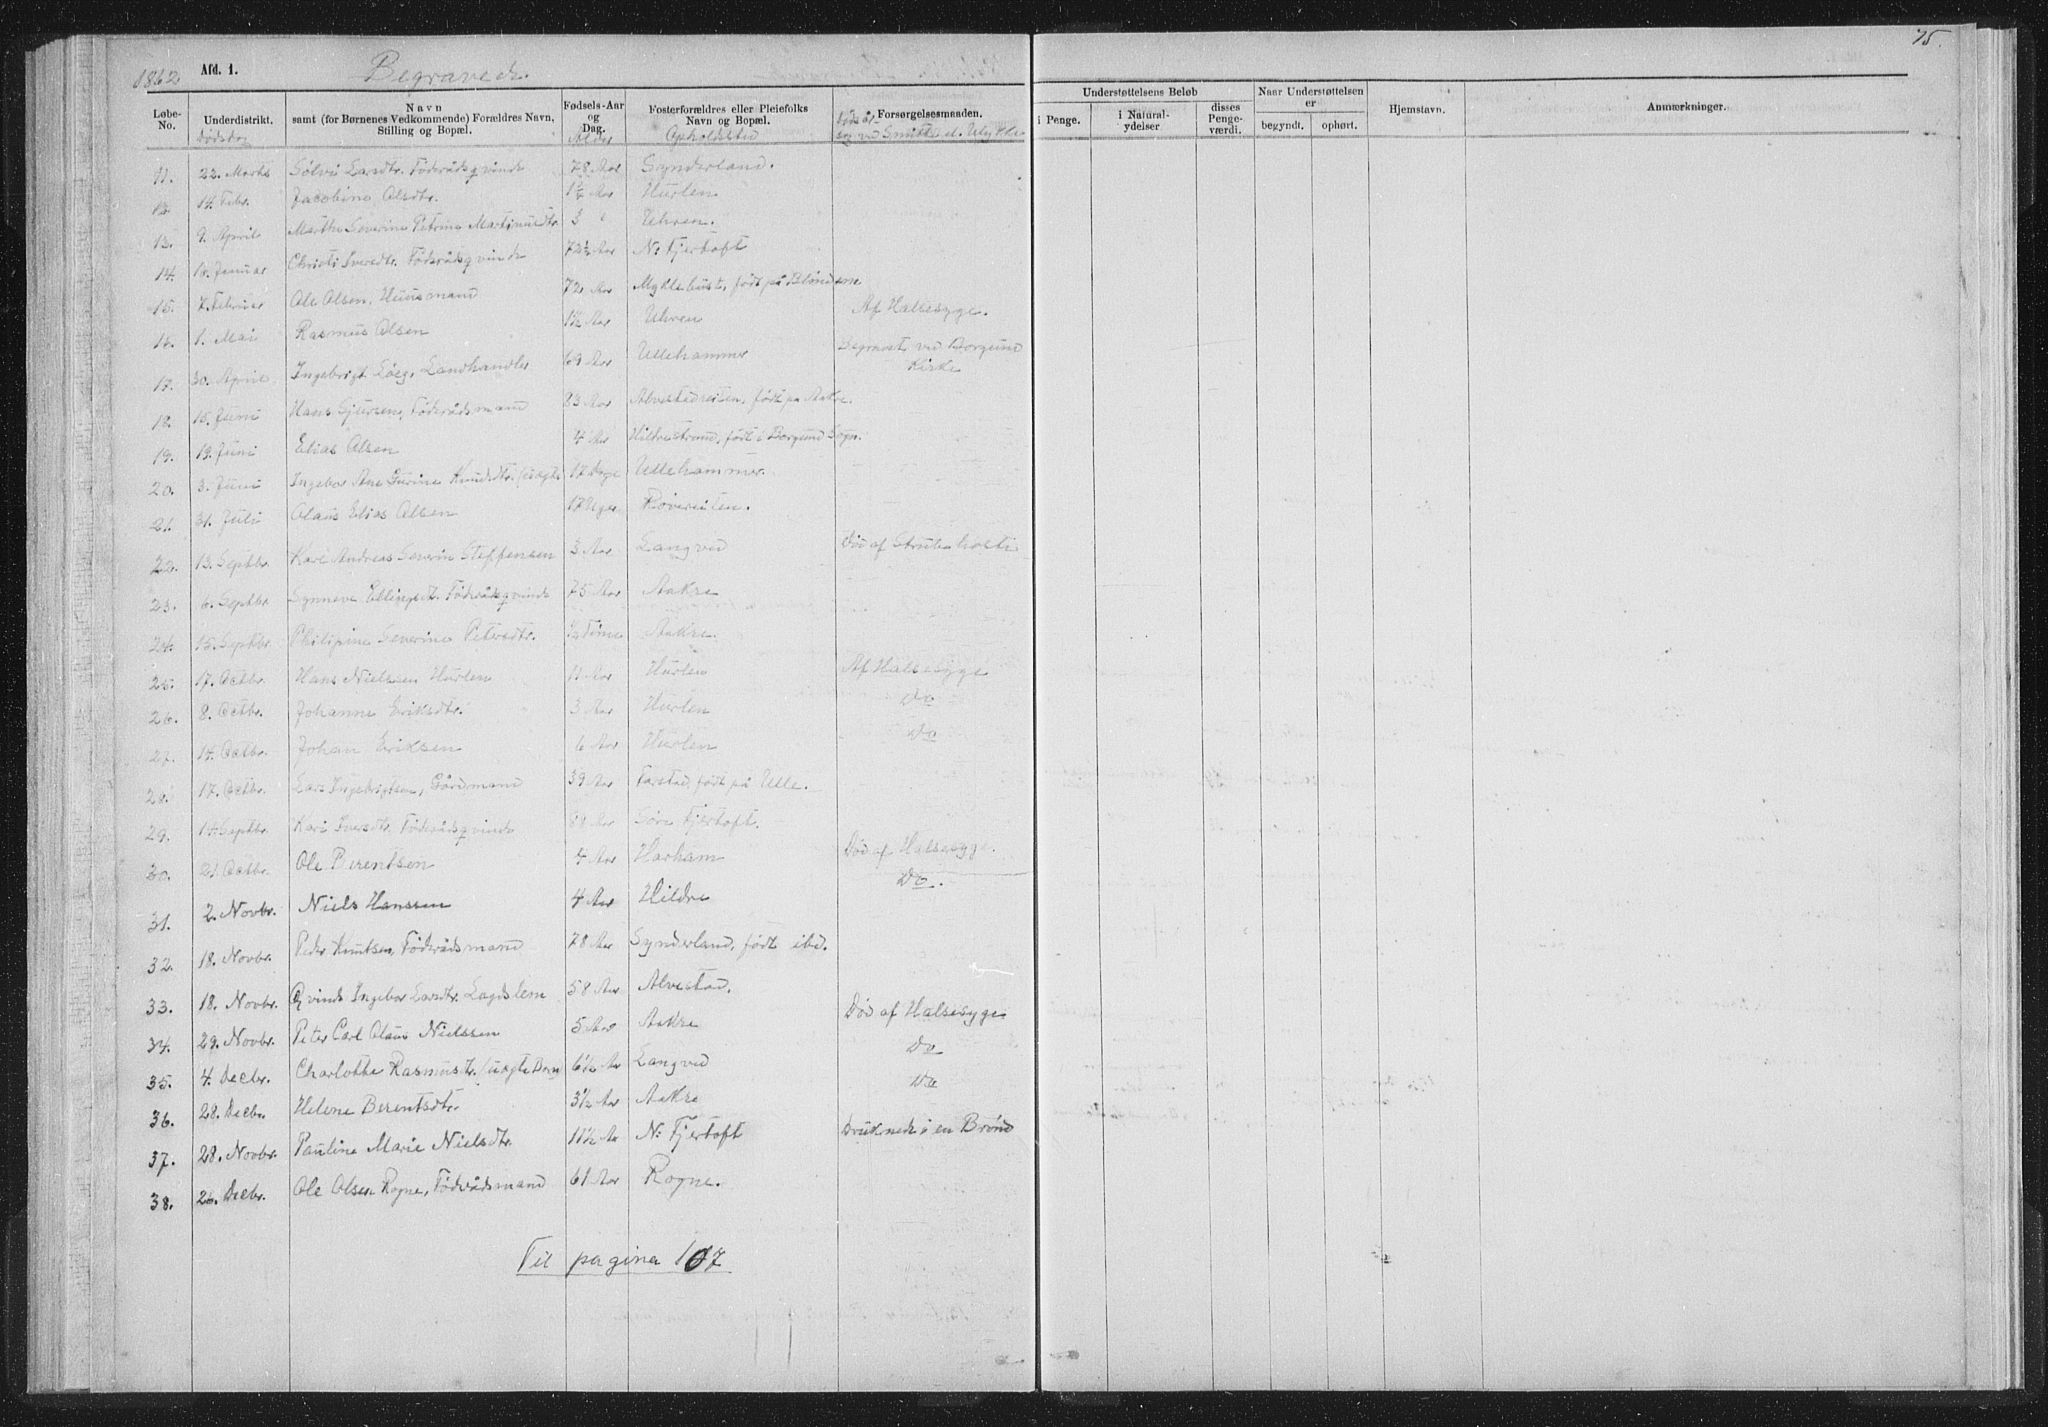 75.
1862 Afd. 1. Begravede.
Løbe-No. Underdistrikt. Navn samt (for Børnenes Vedkommende) Forældres Navn, Stilling og Bopæl. Fødsels-Aar og Dag. Fosterforældres eller Pleiefolks Navn og Bopæl. Forsørgelsesmaaden. Understøttelsens Beløb i Penge. i Naturalydelser disses Pengeværdi. Naar Understøttelsen er begyndt. ophørt. Hjemstavn. Anmærkninger.
Dødsdag Alder Opholdssted
11. 22. Marts Sølvi Larsdtr. Föderådsqvinde 78 Aar Synderland.
12. 14. Febr. Jacobine Olsdtr. 1½ Aar Hurlen
13. 9. April Marthe Severine Petrine Martinusdtr. 3 " Uhren.
14. 18. Januar Christi Iversdtr. Föderådsqvinde 72½ Aar N: Fjertoft
15. 7. Februar Ole Olsen, Huusmand 72 Aar Myklebust, født på Blindem
16. 1. Mai Rasmus Olsen 1½ Aar Uhren Af Halsesyge.
17. 30. April Ingebrigt Løeg, Landhandler 69 Aar Ullehammer Begravet ved Borgund Kirke
18. 15. Juni Hans Sjursen, Föderådsmand 83 Aar Alvestadreiten, født på Aakre.
19. 19. Juni Elias Olsen 4 Aar Hildrestrand, født i Borgund Sogn.
20. 3. Juni Ingebor Ane Gurine Knudsdtr. (uægte 17 Dage Ullehammer.
21. 31. Juli Olaus Elias Olsen 17 Uger Røvereiten.
22. 13. Septbr. Karl Andreas Severin Steffensen 3 Aar Langved Død af Strubehoste
23. 6. Septbr Synneve Ellingsdt. Föderådsqvinde 75 Aar Aakre
24. 15. Septbr. Philipine Severine Petersdtr. ½ Time Aakre.
25. 17. Octbr. Hans Nielssen Hurlen 11 Aar Hurlen Af Halsesyge
26. 8. Octbr. Johanne Eriksdtr. 3 Aar Hurlen Do
27. 14. Octbr. Johan Eriksen 6 Aar Hurlen Do
28. 17. Octbr. Lars Ingebrigtsen, Gårdmand 39 Aar Farstad, født på Ulle.
29. 14. Septbr. Kari Iversdtr. Föderådsqvinde 81 Aar Søre Fjertoft.
30. 21. Octbr. Ole Berentsen 4 Aar Harham Død af Halsesyge.
31. 2. Novbr. Niels Hanssen 4 Aar Hildre Do.
32. 18. Novbr. Peder Knutsen, Föderådsmand 78 Aar Synderland, født ibd.
33. 18. Novbr. Qvinde Ingebor Larsdtr. Lagdslem 58 Aar Alvestad.
34. 29. Novbr. Peter Carl Olaus Nielssen 5 Aar Aakre Død af Halsesyge
35. 4. Decbr. Charlotte Rasmusdtr. (uægte Barn) 6½ Aar Langved Do
36. 28. Decbr Helene Berentsdtr. 3½ Aar Aakre Do
37. 28. Novbr. Pauline Marie Nielsdtr. 11½ Aar N: Fjertoft Druknede i en Brønd
38. 26. Decbr. Ole Olsen Rogne, Föderådsmand 61 Aar Rogne.
Til pagina 107